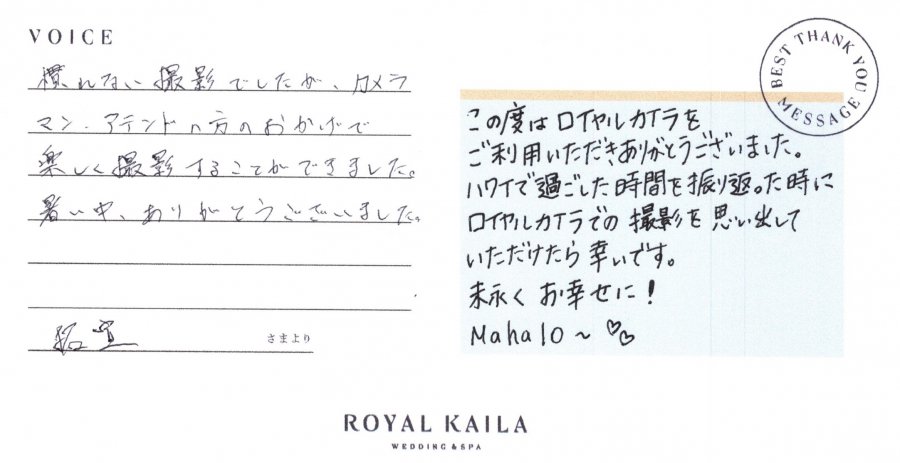 VOICE
慣れない撮影でしたが、カメラ
マン、アテンドの方のおかげで
楽しく撮影することができました。
暑い中、ありがとうございました。
さまより
BEST THANK YOU
MESSAGE
この度は ロイヤルカイラを
ご利用いただきありがとうございました。
ハワイで過ごした時間を振り返った時に
ロイヤルカイラでの 撮影を 思い出して
いただけたら 幸いです。
末永く お幸せに!
Mahalo ~ ♡♡
ROYAL KAILA
WEDDING & SPA